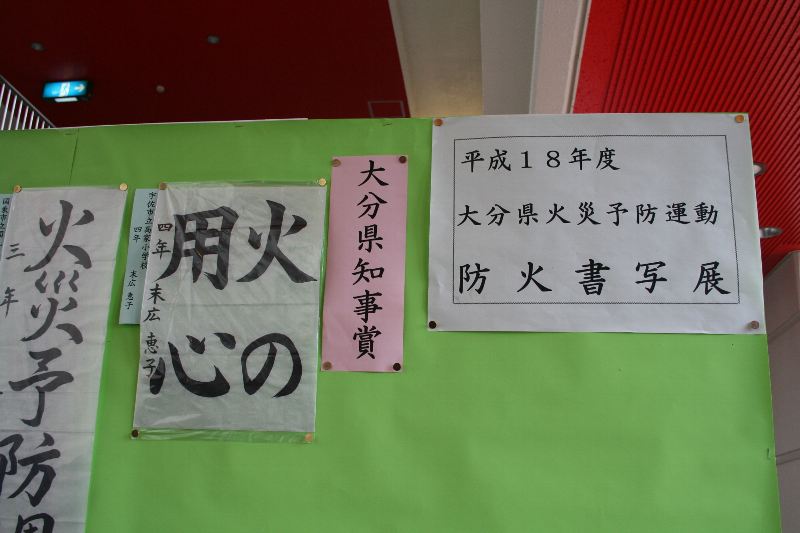 平成18年度
大分県火災予防運動
防火書写展
大分県知事賞
火の
用心
四年 末広 恵子
宇佐市立高家小学校
四年 末広 恵子
火災予防
三年